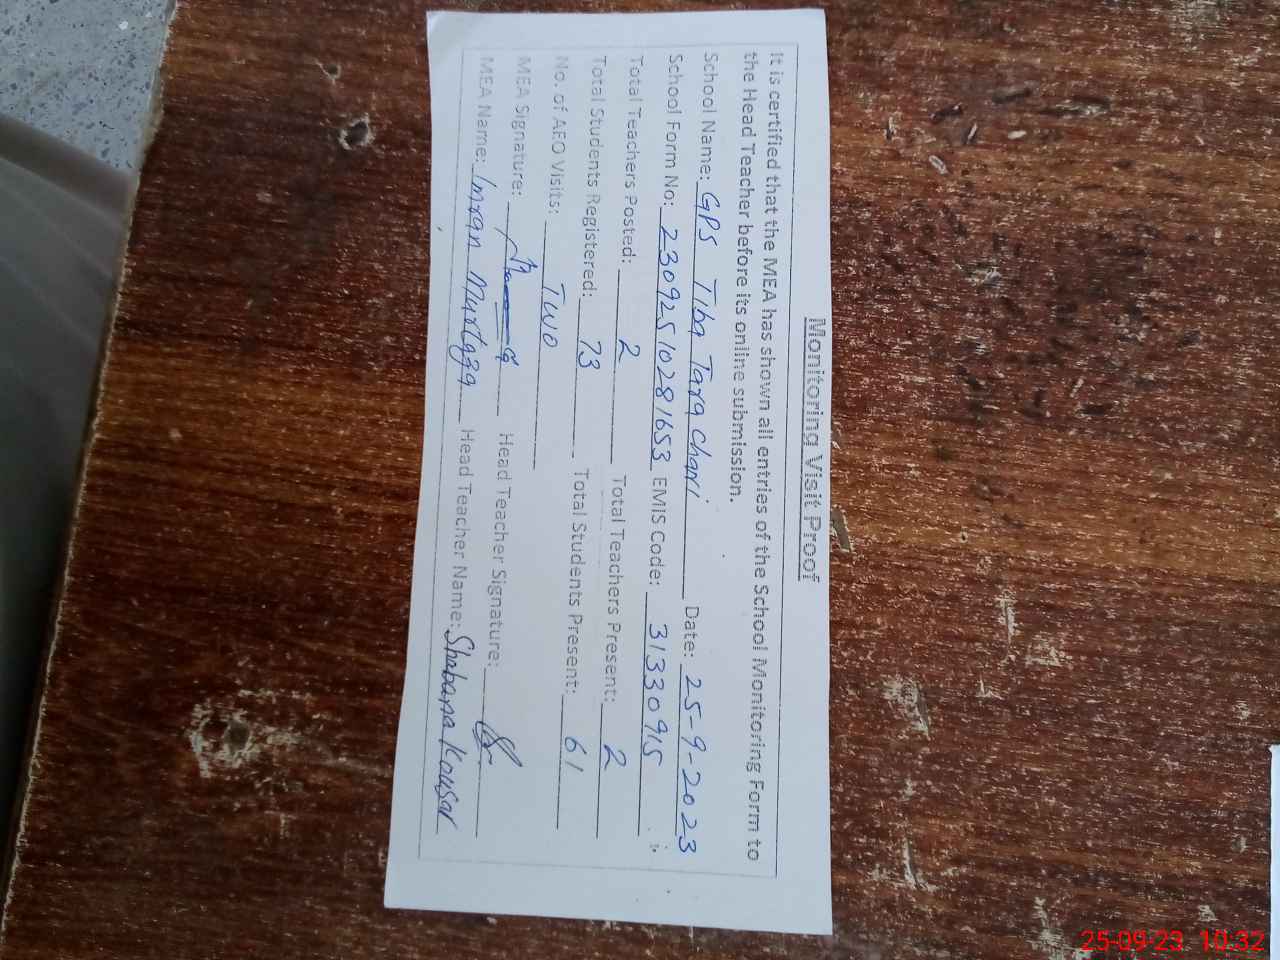 Monitoring Visit Proof
It is certified that the MEA has shown all entries of the School Monitoring Form to
the Head Teacher before its online submission.
School Name: GPS Tiba Tara Chari Date: 25-9-2023
School Form No: 23092510281653 EMIS Code: 31330915
Total Teachers Posted: 2 Total Teachers Present: 2
Total Students Registered: 73 Total Students Present: 61
No. of AEO Visits: Two
MEA Signature: Head Teacher Signature:
MEA Name: Imran Murtaza Head Teacher Name: Shabana Kousar
25-09-23 10:32